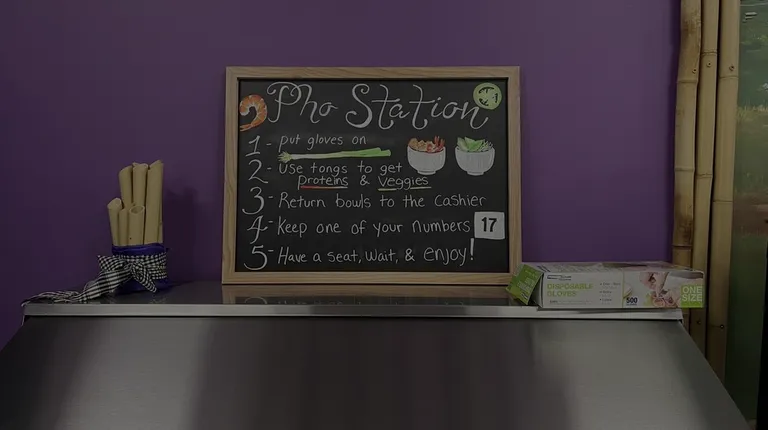 Pho Station
1- Put gloves on
2- Use tongs to get
Proteins & Veggies
3- Return bowls to the cashier
4- Keep one of your numbers 17
5- Have a seat, wait, & enjoy!
DISPOSABLE
GLOVES
500
ONE
SIZE